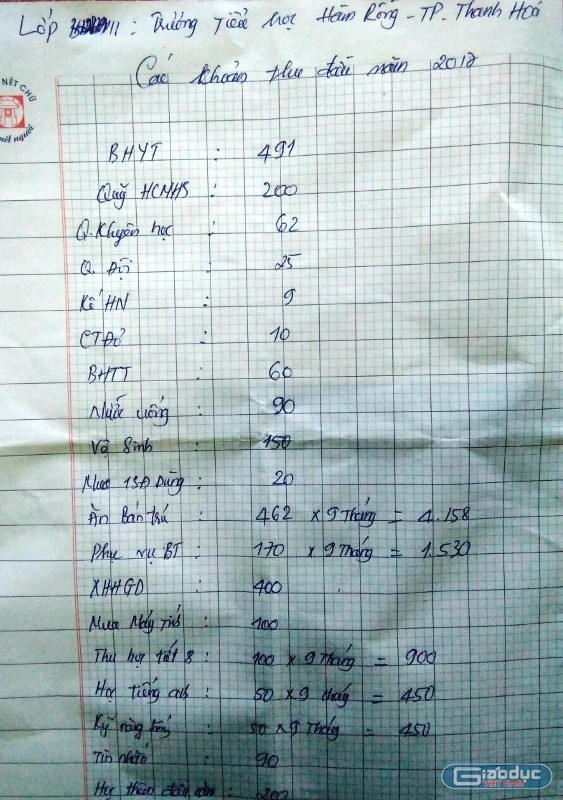 Lớp : Trường Tiểu học Hàm Rồng - TP. Thanh Hoá
Các khoản thu đầu năm 2017
NÉT CHỮ
nết người
BHYT : 491
Quỹ HCMHS : 200
Q. Khuyến học : 62
Q. Đội : 25
Kế HN : 9
CTĐỏ : 10
BHTT : 60
Nước uống : 90
Vệ Sinh : 150
Mua Dùng : 20
Ăn Bán trú : 462 x 9 Tháng = 4.158
Phục vụ BT : 170 x 9 Tháng = 1.530
XHHGD : 400
Mua Máy Tính : 100
Thu học tiết 8 : 100 x 9 Tháng = 900
Học tiếng anh : 50 x 9 tháng = 450
Kỹ năng sống : 50 x 9 Tháng = 450
Tin nhắn : 90
Học thêm đầu năm : 200
Giáo dục
VIỆT NAM